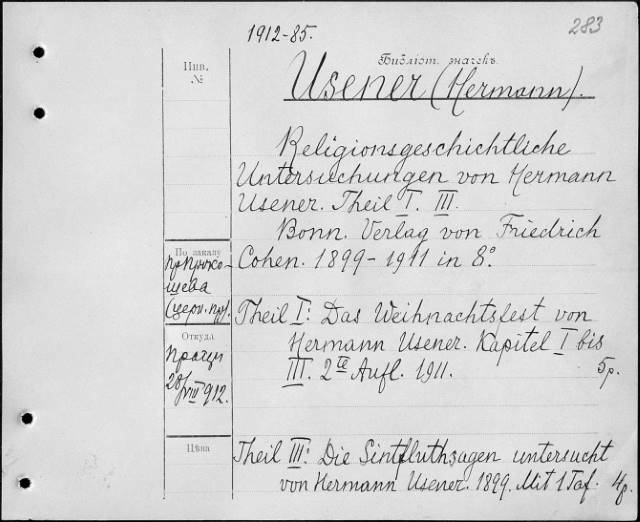 1912-85.
283
Инв.
№
Библіот. значекъ.
Usener (Hermann).
Religionsgeschichtliche
Untersuchungen von Hermann
Usener. Theil I. III.
Bonn. Verlag von Friedrich
Cohen. 1899-1911 in 8°.
По заказу
щева
Theil I: Das Weihnachtsfest von
Hermann Usener. Kapitel I bis
III. 2te Aufl. 1911.
5р.
Откуда
912.
Цѣна
Theil III: Die Sintfluthsagen untersucht
von Hermann Usener. 1899. Mit 1 Taf. 4р.